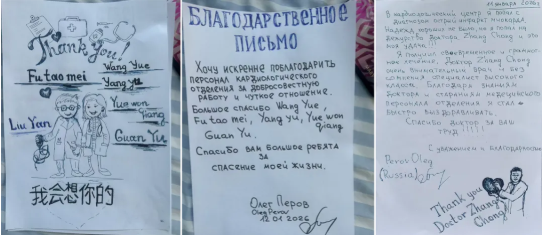 Thank You!
Wang Yue
Fu tao mei
Yang yu
Yue won
qiang
Liu Yan
Guan Yu
我会想你的
БЛАГОДАРСТВЕННОЕ
ПИСЬМО
Хочу искренне поблагодарить
персонал кардиологического
отделения за добросовестную
работу и чуткое отношение.
Большое спасибо Wang Yue,
Fu tao mei, Yang yu, Yue won
qiang
Guan Yu.
Спасибо вам большое ребята
за
спасение моей жизни.
Олег Перов
Oleg Perov
12.01.2026
11 января 2026г
В кардиологический центр я попал с
диагнозом острый инфаркт миокарда.
Надежд хороших не было, но я попал на
дежурство доктора Zhang Chong и это
моя удача!!!
Я получил своевременное и грамотн
ое лечение. Доктор Zhang Chong
очень внимательный врач
и специалист высокого
класса. Благодаря знаниям
доктора и стараниям медицинского
персонала отделения я стал
быстро выздоравливать.
Спасибо доктор за ваш
труд!!!!
С уважением и благодарностью
Perov Oleg
(Russia)
Thank you
Doctor Zhang
Chong!